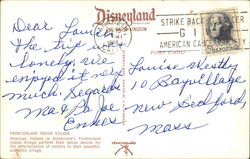 Disneyland
THE MAGIC KINGDOM
STRIKE BACK
GI
AMERICAN CAN
POST CARD
Dear Louise
the trip was
lovely, we
enjoyed it very
much. Regards
Ma & Pa
Louise
10 Bayvillage
New Bedford,
Mass
FRONTIERLAND INDIAN VILLAGE
American Indians in Disneyland's Frontierland
Indian Village perform their native dances for
the entertainment of visitors to their peaceful,
authentic village.